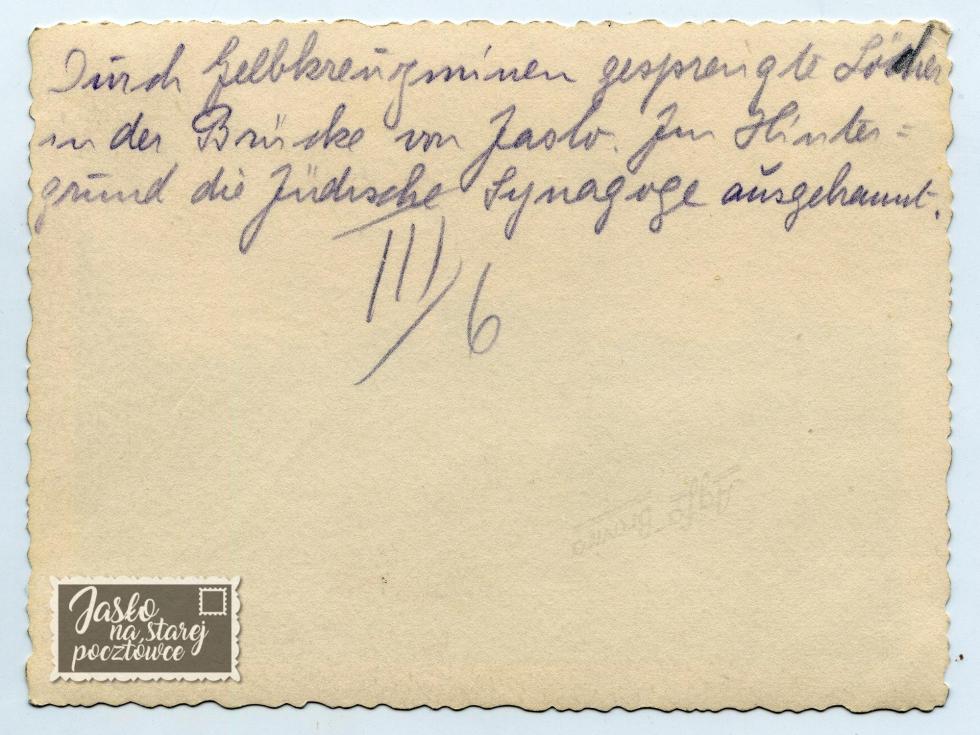 Durch Gelbkreuzminen gesprengte Löcher
in der Brücke von Jaslo. Im Hinter=
grund die Jüdische Synagoge ausgebrannt.
III/6
Agfa-Brovira
Jasło
na starej
pocztówce